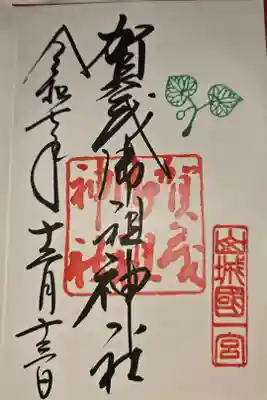 山城國一宮
賀茂御祖神社
賀茂
御祖
神社
令和七年十二月十三日